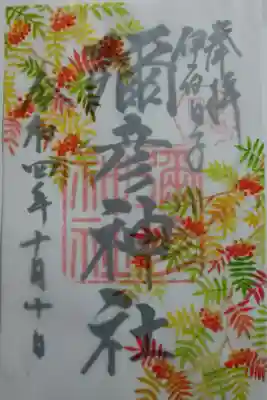 奉拝
伊夜日子
彌彦神社
令和四年十月十日